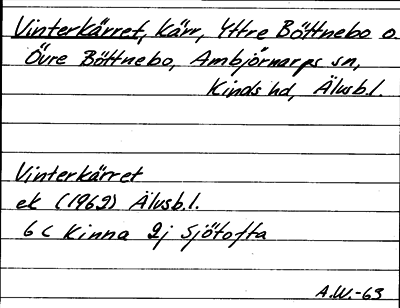 Vinterkärret, Kärr, Yttre Böttnebo o.
Övre Böttnebo, Ambjörnarps sn,
Kinds hd, Älvsb.l.
Vinterkärret
ek (1962) Älvsb.l.
6 C Kinna 2j Sjötofta
A.W.-63